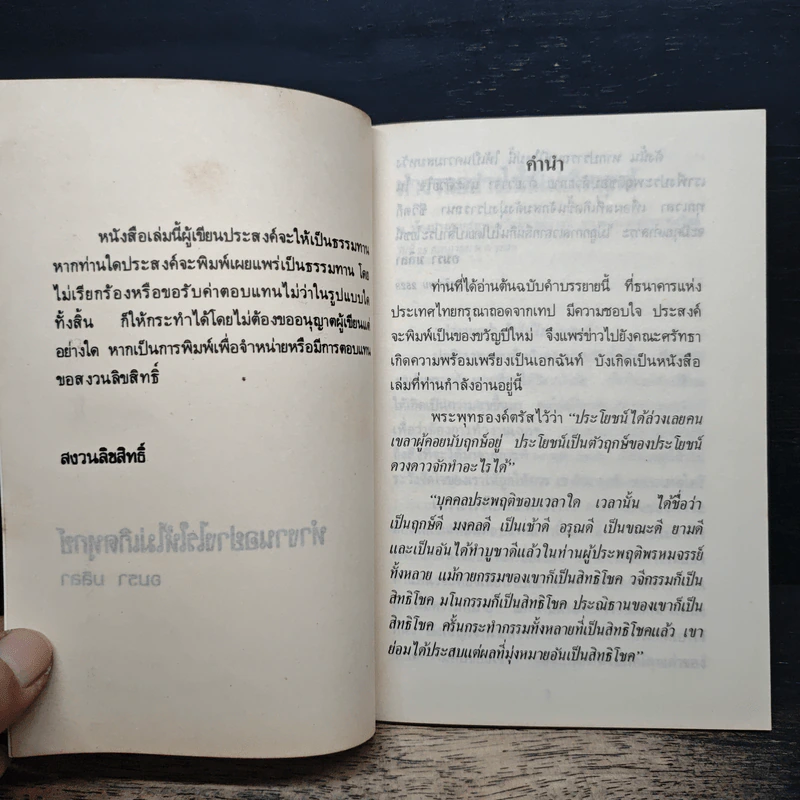 หนังสือเล่มนี้ผู้เขียนประสงค์จะให้เป็นธรรมทาน
หากท่านใดประสงค์จะพิมพ์เผยแพร่เป็นธรรมทาน โดย
ไม่เรียกร้องหรือขอรับค่าตอบแทนไม่ว่าในรูปแบบใด
ทั้งสิ้น ก็ให้กระทำได้โดยไม่ต้องขออนุญาตผู้เขียนแต่
อย่างใด หากเป็นการพิมพ์เพื่อจำหน่ายหรือมีการตอบแทน
ขอสงวนลิขสิทธิ์
สงวนลิขสิทธิ์
คำนำ
ท่านที่ได้อ่านต้นฉบับคำบรรยายนี้ ที่ธนาคารแห่ง
ประเทศไทยกรุณาถอดจากเทป มีความชอบใจ ประสงค์
จะพิมพ์เป็นของขวัญปีใหม่ จึงแพร่ข่าวไปยังคณะศรัทธา
เกิดความพร้อมเพรียงเป็นเอกฉันท์ บังเกิดเป็นหนังสือ
เล่มที่ท่านกำลังอ่านอยู่นี้
พระพุทธองค์ตรัสไว้ว่า “ประโยชน์ได้ล่วงเลยคน
เขลาผู้คอยนับฤกษ์อยู่ ประโยชน์เป็นตัวฤกษ์ของประโยชน์
ดวงดาวจักทำอะไรได้”
“บุคคลประพฤติชอบเวลาใด เวลานั้น ได้ชื่อว่า
เป็นฤกษ์ดี มงคลดี เป็นเช้าดี อรุณดี เป็นขณะดี ยามดี
และเป็นอันได้ทำบูชาดีแล้วในท่านผู้ประพฤติพรหมจรรย์
ทั้งหลาย แม้กายกรรมของเขาก็เป็นสิทธิโชค วจีกรรมก็เป็น
สิทธิโชค มโนกรรมก็เป็นสิทธิโชค ประณิธานของเขาก็เป็น
สิทธิโชค ครั้นกระทำกรรมทั้งหลายที่เป็นสิทธิโชคแล้ว เขา
ย่อมได้ประสบแต่ผลที่มุ่งหมายอันเป็นสิทธิโชค”